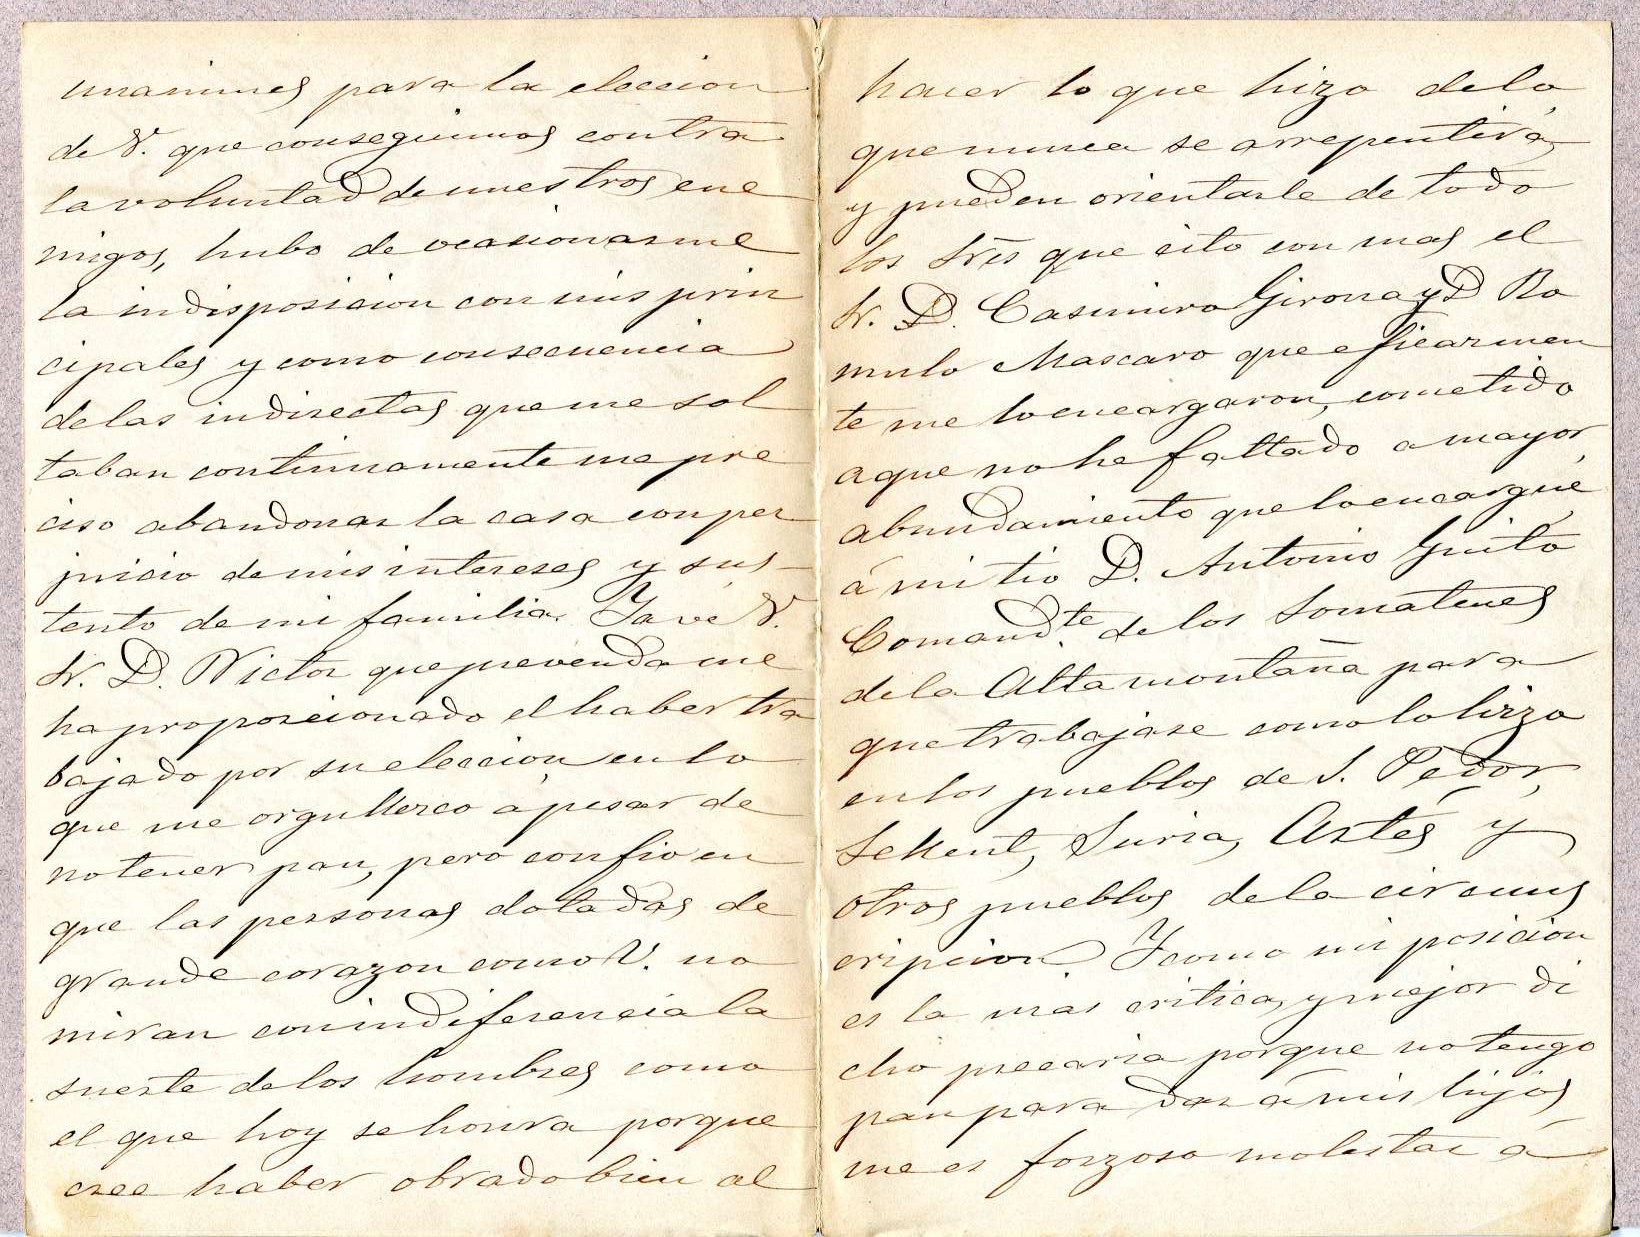 unanimes para la eleccion
de V. que conseguimos contra
la voluntad de nuestros ene
migos, hubo de ocasionarme
la indisposicion con mis prin
cipales y como consecuencia
de las indirectas que me sol
taban continuamente me pre
ciso abandonar la casa con per
juicio de mis intereses y sus-
tento de mi familia. Ya ve V.
Sr. D. Victor que prevenda me
ha proporcionado el haber tra
bajado por su eleccion en lo
que me orgullezco á pesar de
no tener pan, pero confio en
que las personas dotadas de
grande corazon como V. no
miran con indiferencia la
suerte de los hombres como
el que hoy se honra porque
cree haber obrado bien al
hacer lo que hizo de lo
que nunca se arrepentirá,
y pueden orientarle de todo
los Sres que cito con mas el
Sr. D. Casimiro Girona y D Ro
mulo Mascaro que eficazmen
te me lo encargaron, cometido
a que no he faltado a mayor
abundamiento que lo encargué
á mi tio D. Antonio Guitó
Comandte. de los Somatenes
de la Alta montaña para
que trabajase como lo hizo
en los pueblos de S. Pedor,
Sellent, Suria, Artés y
otros pueblos de la circuns
cripcion. Y como mi posicion
es la mas critica, y mejor di
cho precaria porque no tengo
pan para dar á mis hijos
me es forzoso molestar á